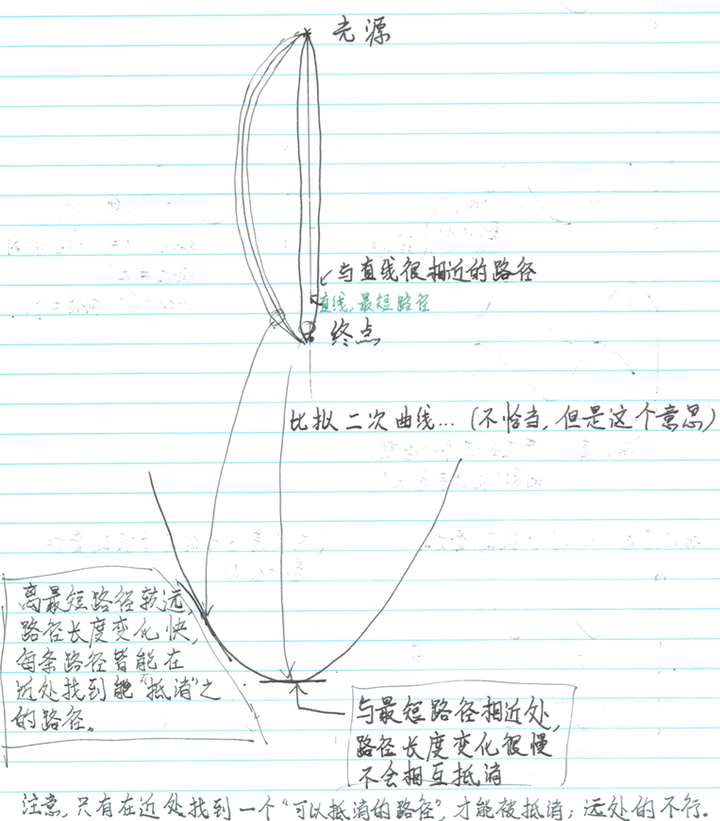 光源
与直线很相近的路径
直线,最短路径
终点
比拟二次曲线...(不恰当,但是这个意思)
离最短路径较远,
路径长度变化快,
每条路径皆能在
近处找到能"抵消"之
的路径。
与最短路径相近处,
路径长度变化很慢
不会相互抵消
注意,只有在近处找到一个"可以抵消的路径",才能被抵消;远处的不行.